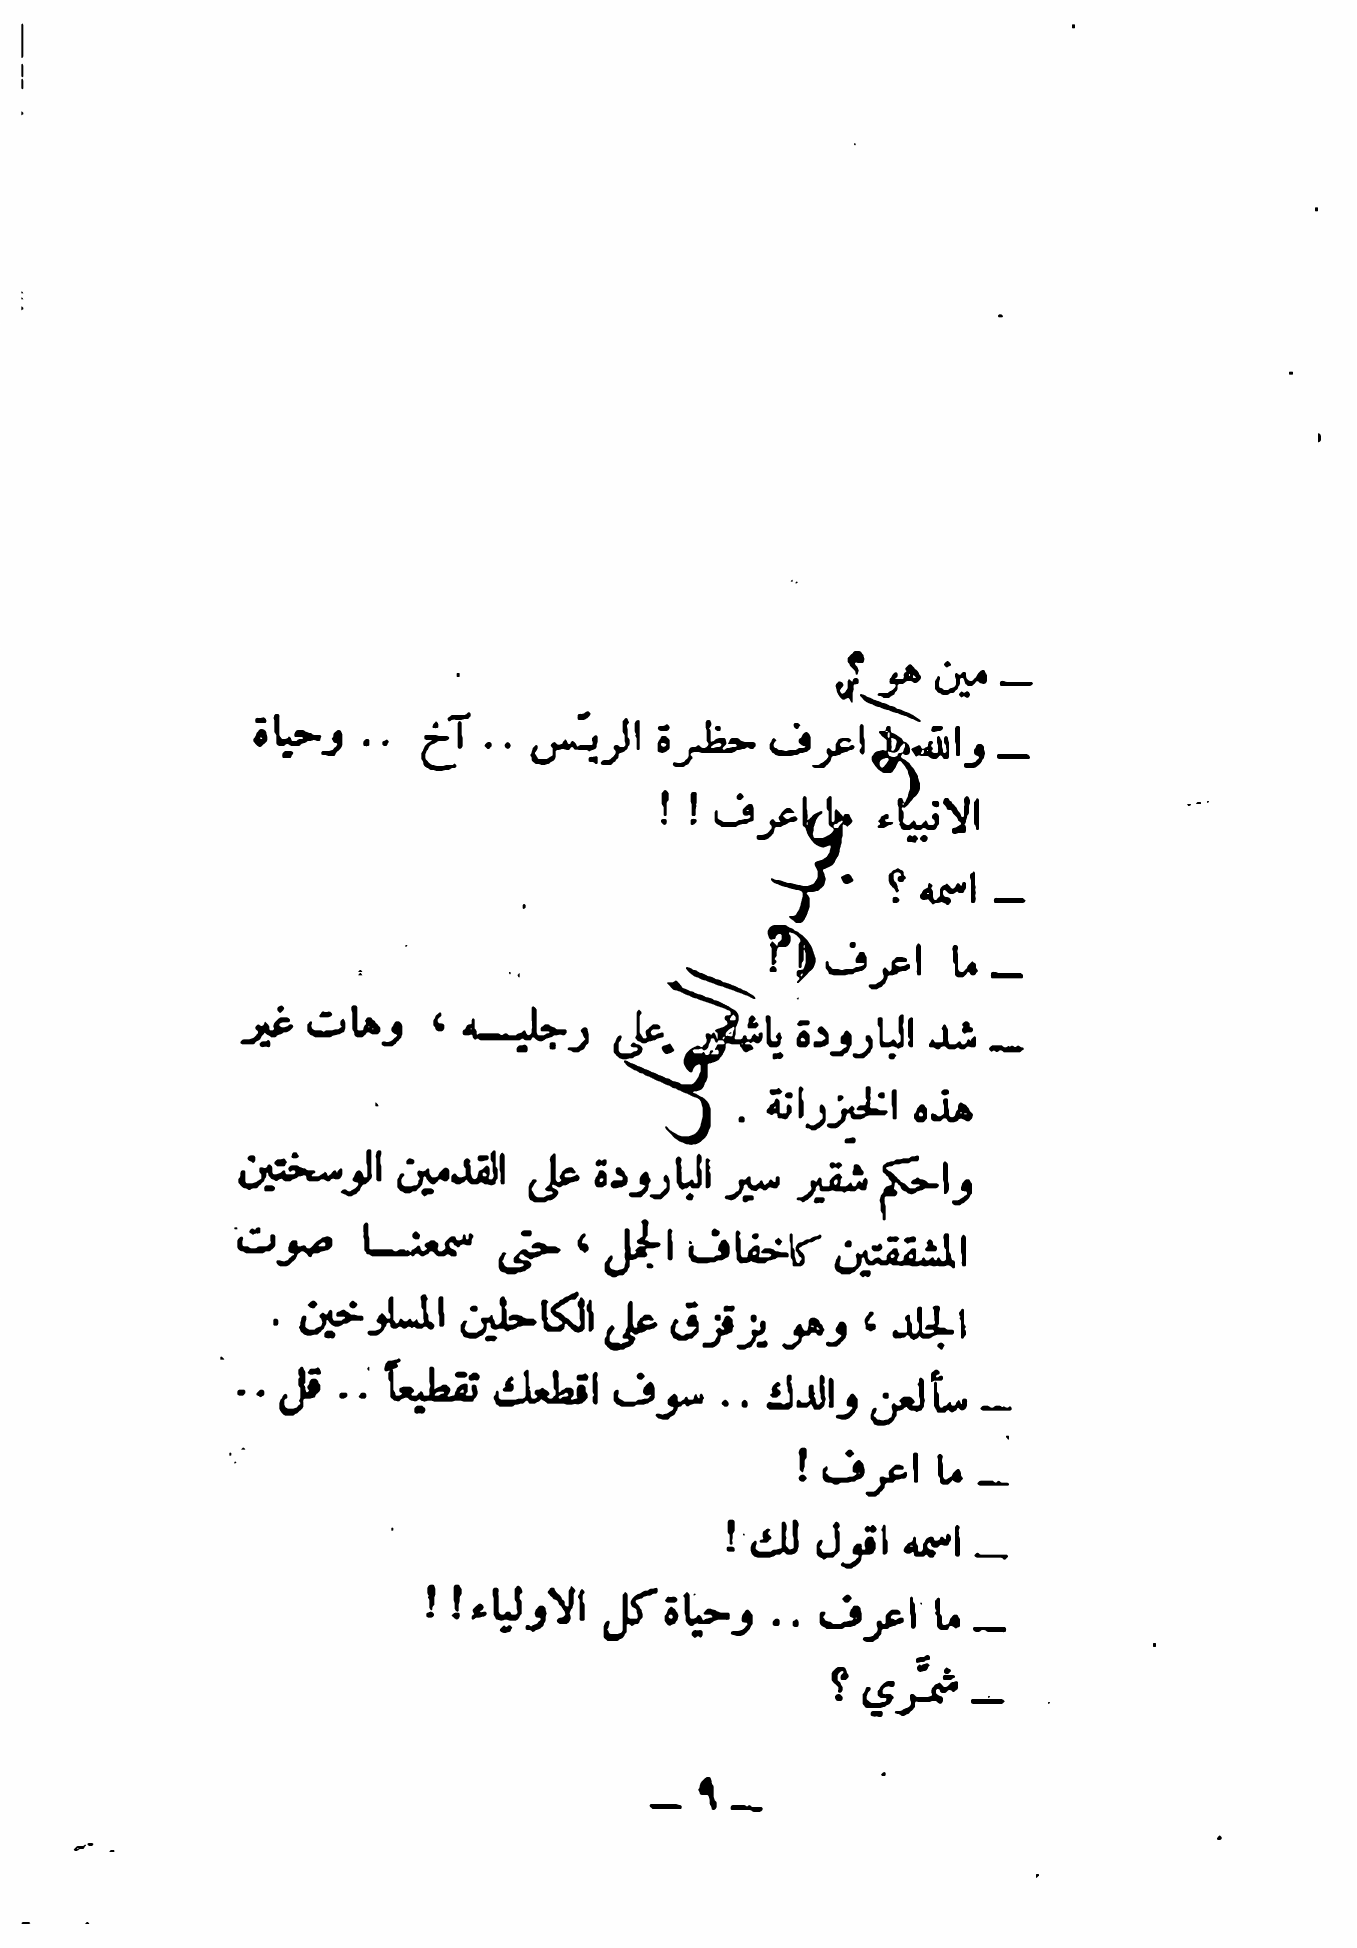 ـ مين هو ؟
ـ والله ما اعرف حظرة الريّس .. آخ .. وحياة
الانبياء ما اعرف ! !
ـ اسمه ؟
ـ ما اعرف ! ؟
ـ شد البارودة ياشقير على رجليـــه ، وهات غير
هذه الخيزرانة .
واحكم شقير سير البارودة على القدمين الوسختين
المشققتين كاخفاف الجمل ، حتى سمعنـــا صوت
الجلد ، وهو يزقزق على الكاحلين المسلوخين .
ـ سألعن والدك .. سوف اقطعك تقطيعاً .. قل ..
ـ ما اعرف !
ـ اسمه اقول لك !
ـ ما اعرف .. وحياة كل الاولياء ! !
ـ شمَّري ؟
ـ ٩ ـ